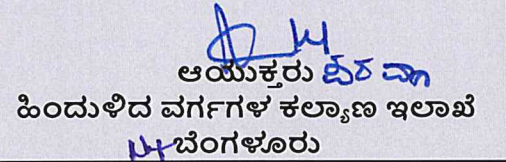 ಆಯುಕ್ತರು ಪರವಾಗಿ
ಹಿಂದುಳಿದ ವರ್ಗಗಳ ಕಲ್ಯಾಣ ಇಲಾಖೆ
ಬೆಂಗಳೂರು